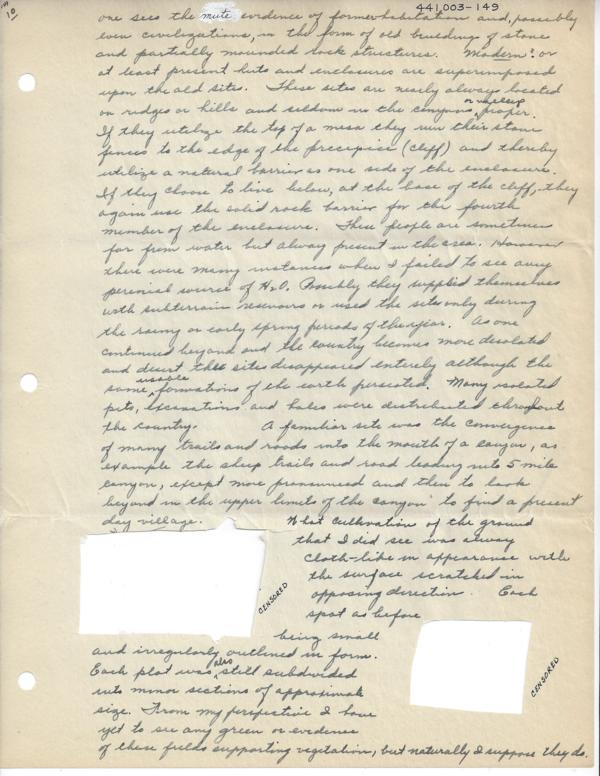 10
441,003-149
one sees the mute evidence of former habitation and, possibly
even civilizations, in the form of old building of stone
and partially mounded rock structures. Modern? or
at least present huts and enclosures are superimposed
upon the old sites. These sites are nearly always located
on ridges or hills and seldom in the canyons or valleys proper.
If they utilize the top of a mesa they run their stone
fences to the edge of the precipice (cliff) and thereby
utilize a natural barrier as one side of the enclosure.
If they choose to live below, at the base of the cliff, they
again use the solid rock barrier for the fourth
member of the enclosure. These people are sometimes
far from water but alway present in the area. However
there were many instances when I failed to see any
perinial source of H2O. Possibly they supplied themselves
with subterrain resevours or used the sites only during
the rainy or early spring periods of the year. As one
continued beyond and the country becomes more desolated
and desert the sites disappeared enterely although the
same usable formations of the earth persisted. Many isolated
pits, excavations and holes were distributed throughout
the country. A familiar site was the convergence
of many trails and roads into the mouth of a canyon, as
example the sheep trails and road leading into 5 mile
canyon, except more pronounced and then to look
beyond in the upper limits of the canyon to find a present
day village. What cultivation of the ground
that I did see was alway
cloth-like in appearance with
the surface scratched in
opposing direction. Each
spot as before
CENSORED
being small
and irregularly outlined in form.
Each plot was also still subdivided
into minor sections of approximate
size. From my perspective I have
yet to see any green or evidence
CENSORED
of these fields supporting vegitation, but naturally I suppose they do.